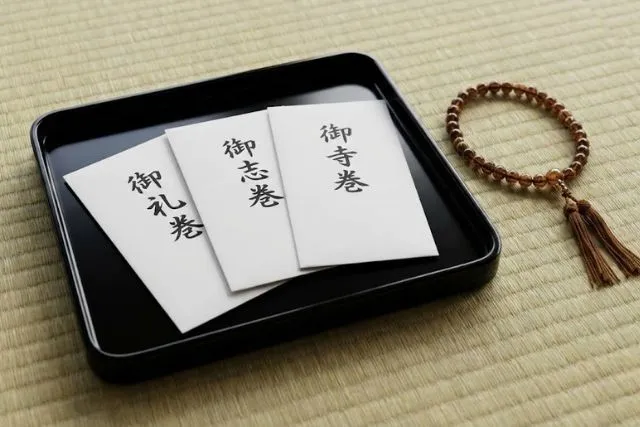 御礼巻
御志巻
御寺巻